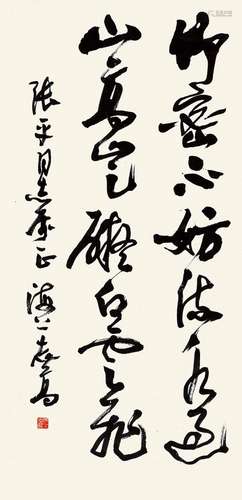 竹密不妨流水过
山高岂碍白云飞
张平同志存正 海上袁高